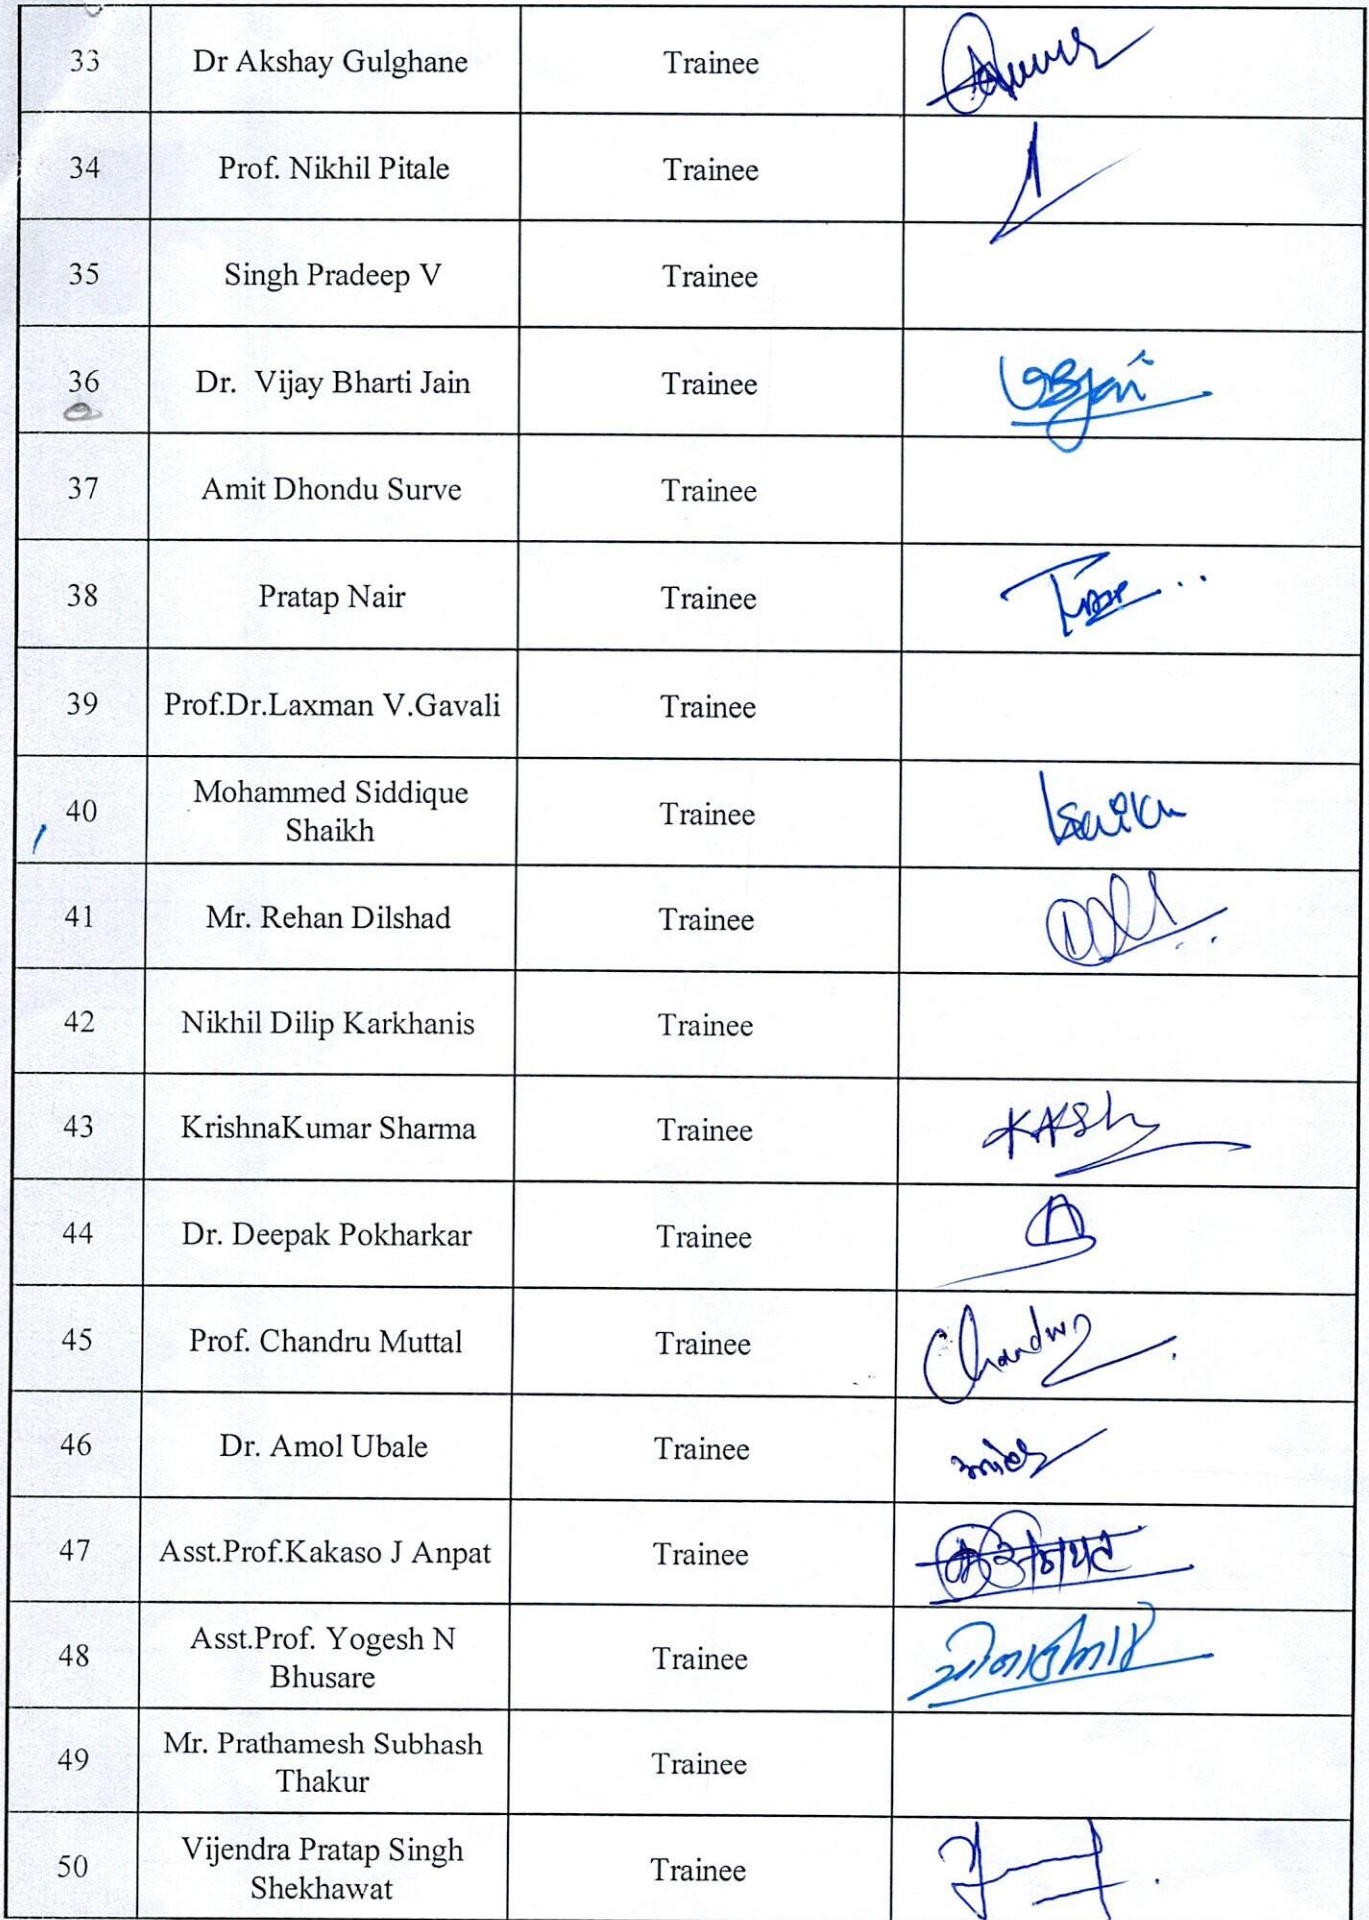 33 Dr Akshay Gulghane Trainee
34 Prof. Nikhil Pitale Trainee
35 Singh Pradeep V Trainee
36 Dr. Vijay Bharti Jain Trainee
37 Amit Dhondu Surve Trainee
38 Pratap Nair Trainee
39 Prof.Dr.Laxman V.Gavali Trainee
40 Mohammed Siddique
Shaikh Trainee
41 Mr. Rehan Dilshad Trainee
42 Nikhil Dilip Karkhanis Trainee
43 KrishnaKumar Sharma Trainee
44 Dr. Deepak Pokharkar Trainee
45 Prof. Chandru Muttal Trainee
46 Dr. Amol Ubale Trainee
47 Asst.Prof.Kakaso J Anpat Trainee
48 Asst.Prof. Yogesh N
Bhusare Trainee
49 Mr. Prathamesh Subhash
Thakur Trainee
50 Vijendra Pratap Singh
Shekhawat Trainee